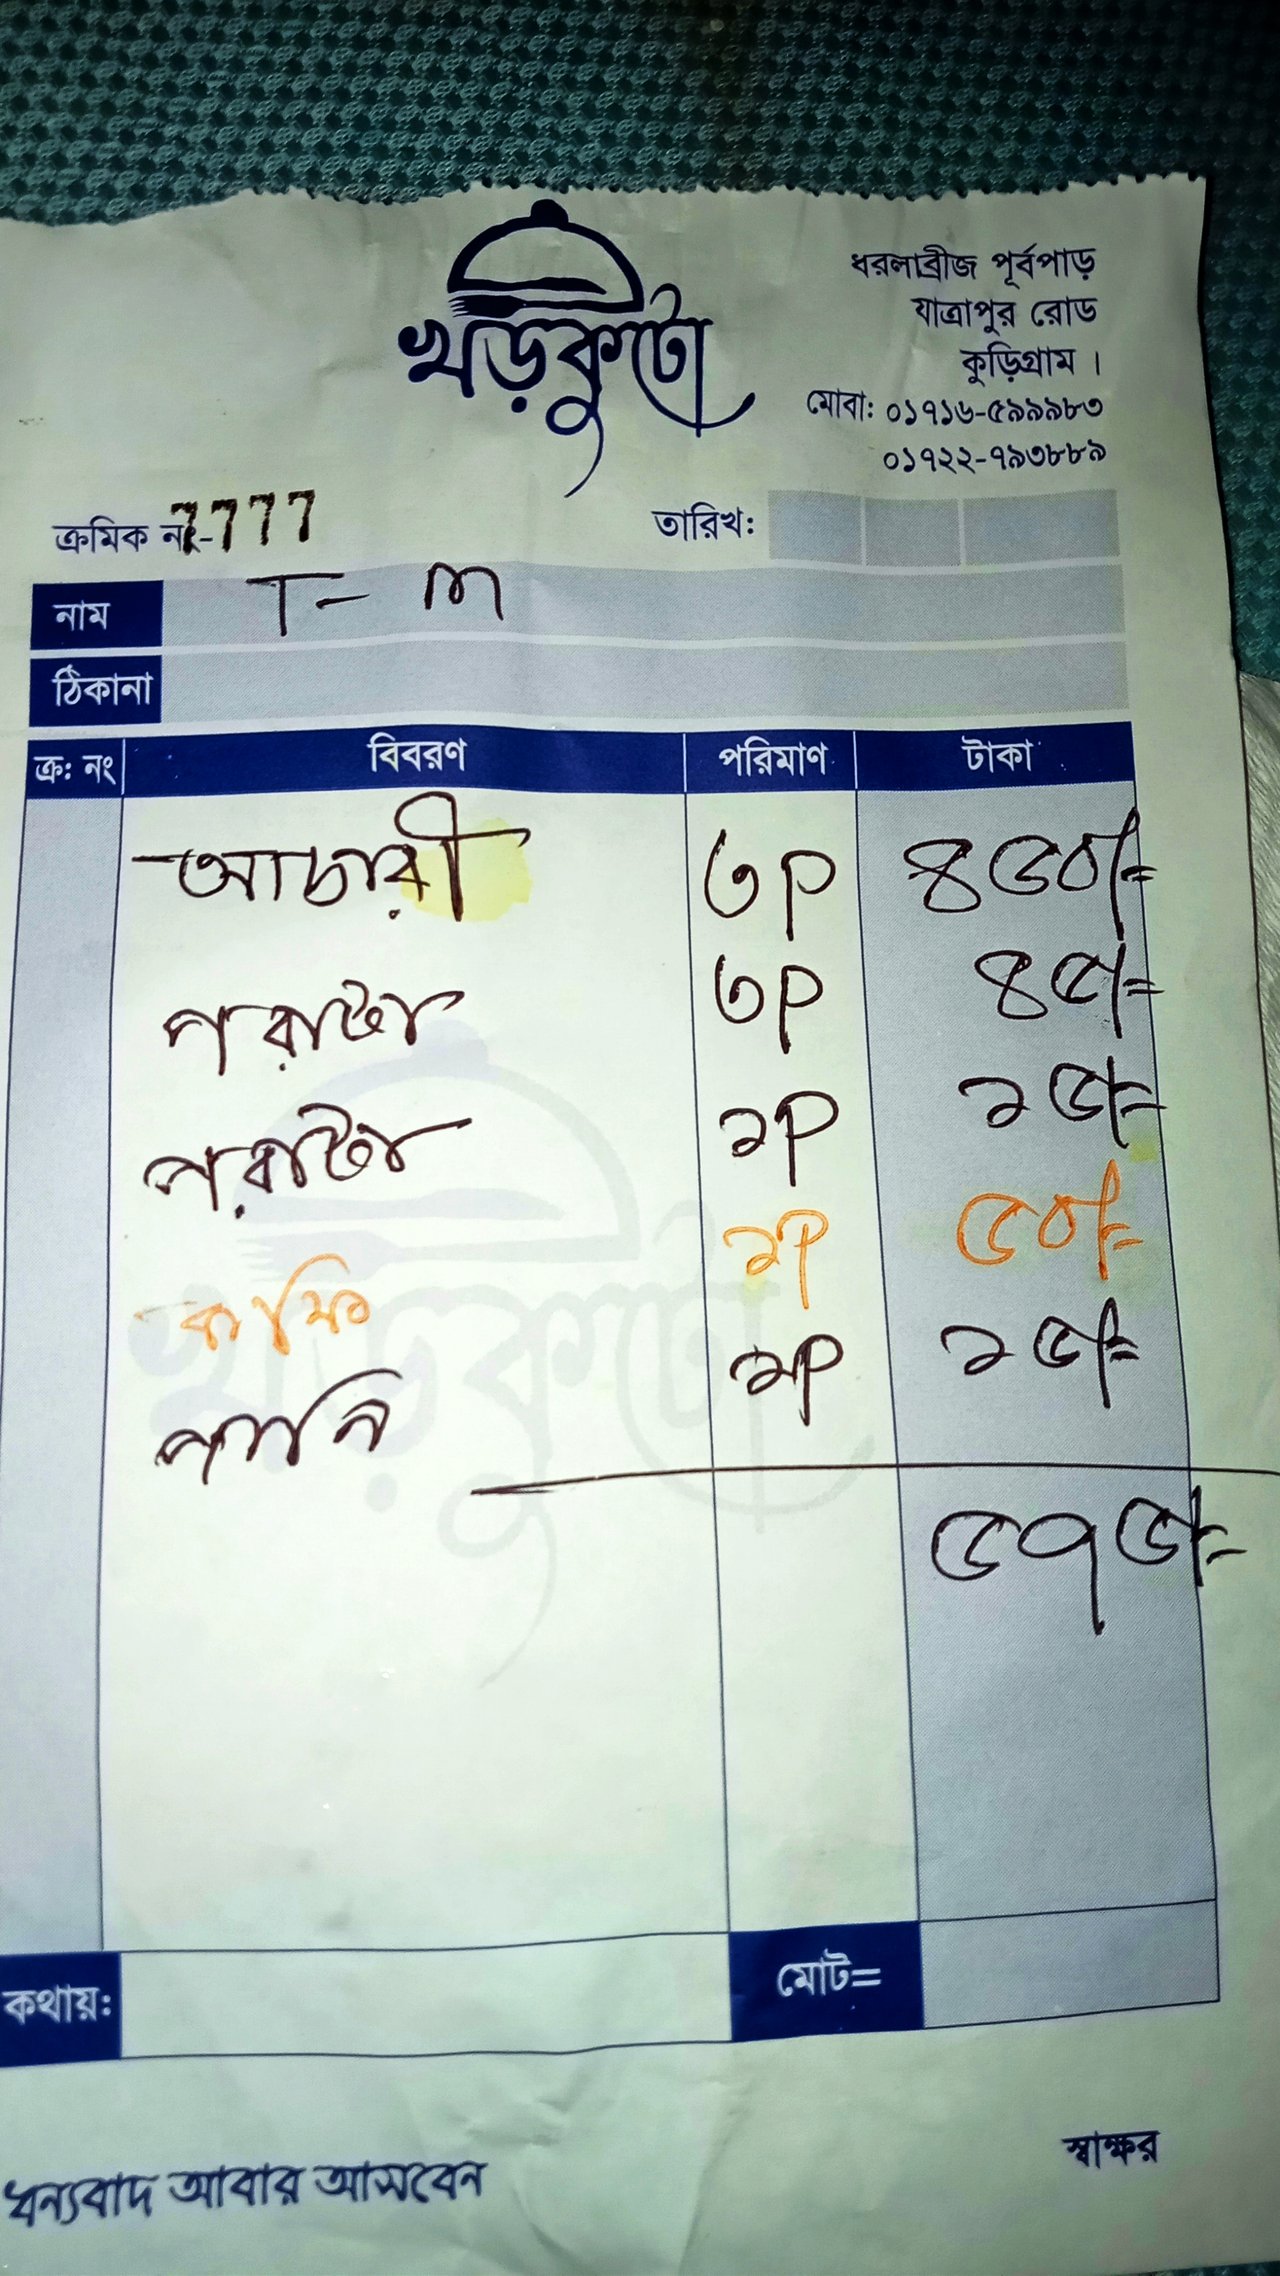 খড়কুটো
ধরলাব্রীজ পূর্বপাড়
যাত্রাপুর রোড
কুড়িগ্রাম।
মোবা: ০১৭১৬-৫৯৯৯৮৩
০১৭২২-৭৯৩৮৮৯
ক্রমিক নং- 7777 তারিখ:
নাম T- m
ঠিকানা
ক্র: নং বিবরণ পরিমাণ টাকা
আচারী ৩P ৪৫০/=
পরাটা ৩P ৪৫/=
পরাটা ১P ১৫/=
কফি ১P ৫০/=
পানি ১P ১৫/=
৫৭৫/=
কথায়: মোট=
স্বাক্ষর
ধন্যবাদ আবার আসবেন